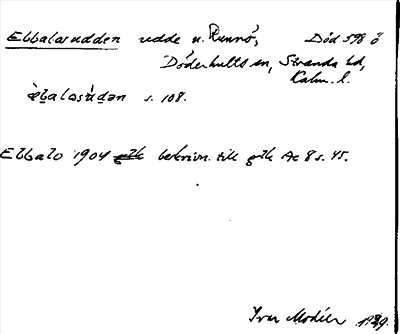 Ebbalasudden udde n. Runnö, Död 598 ö
Döderhults sn, Stranda hd,
Kalm. l.
æb̬alasùd̬ən s. 108.
Ebbalo 1904 gtk beskrivn. till gtk Ac 8 s. 45.
Ivar Modéer 1939.